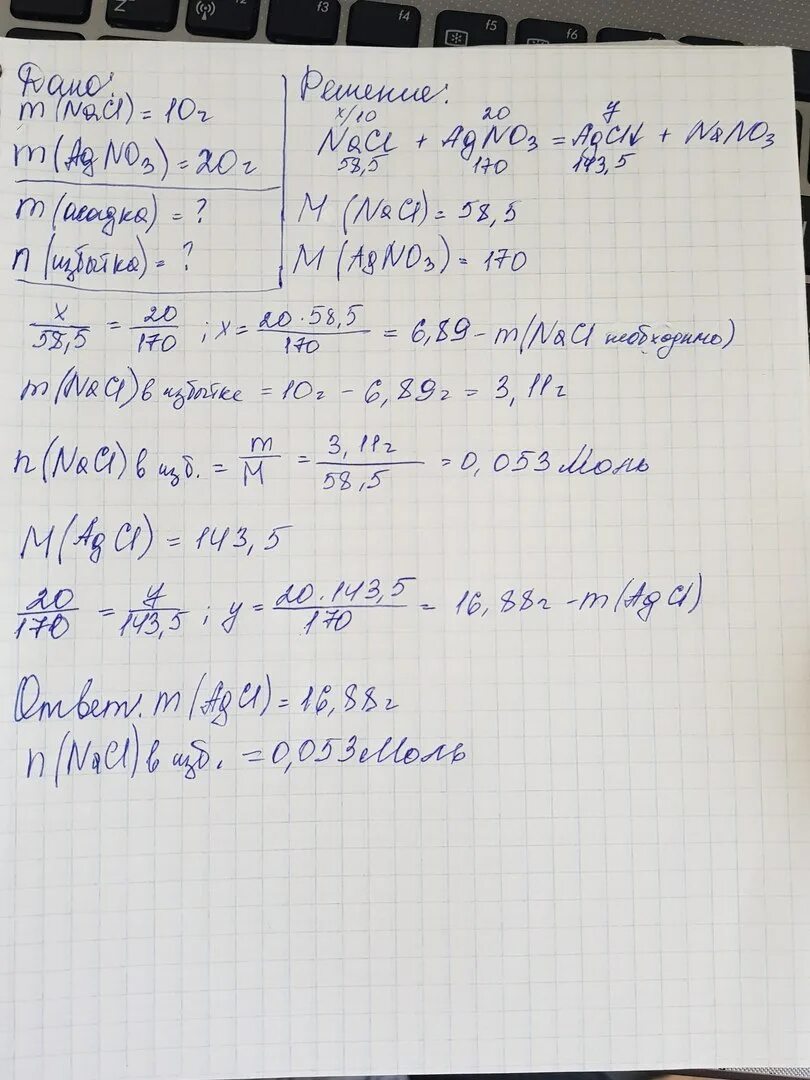 Z
f3
f4
f5
f6
Дано:
m(NaCl) = 10г
m(AgNO₃) = 20г
m(осадка) = ?
n(избытка) = ?
Решение:
x/10 20 y
NaCl + AgNO₃ = AgCl↓ + NaNO₃
58,5 170 143,5
M(NaCl) = 58,5
M(AgNO₃) = 170
x/58,5 = 20/170 ; x = 20·58,5/170 = 6,89 - m(NaCl необходимо)
m(NaCl) в избытке = 10г - 6,89г = 3,11г
n(NaCl) в изб. = m/M = 3,11г/58,5 = 0,053 Моль
M(AgCl) = 143,5
20/170 = y/143,5 ; y = 20·143,5/170 = 16,88г - m(AgCl)
Ответ: m(AgCl) = 16,88г
n(NaCl) в изб. = 0,053 Моль